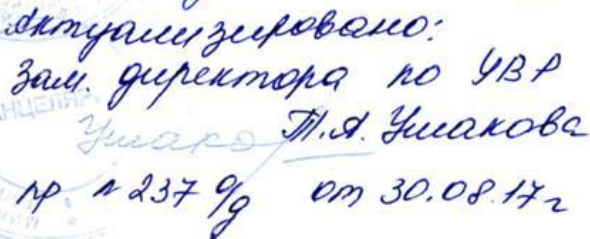 Актуализировано:
Зам. директора по УВР
Ушако Т.А. Ушакова
пр № 237 о/д от 30.08.17г